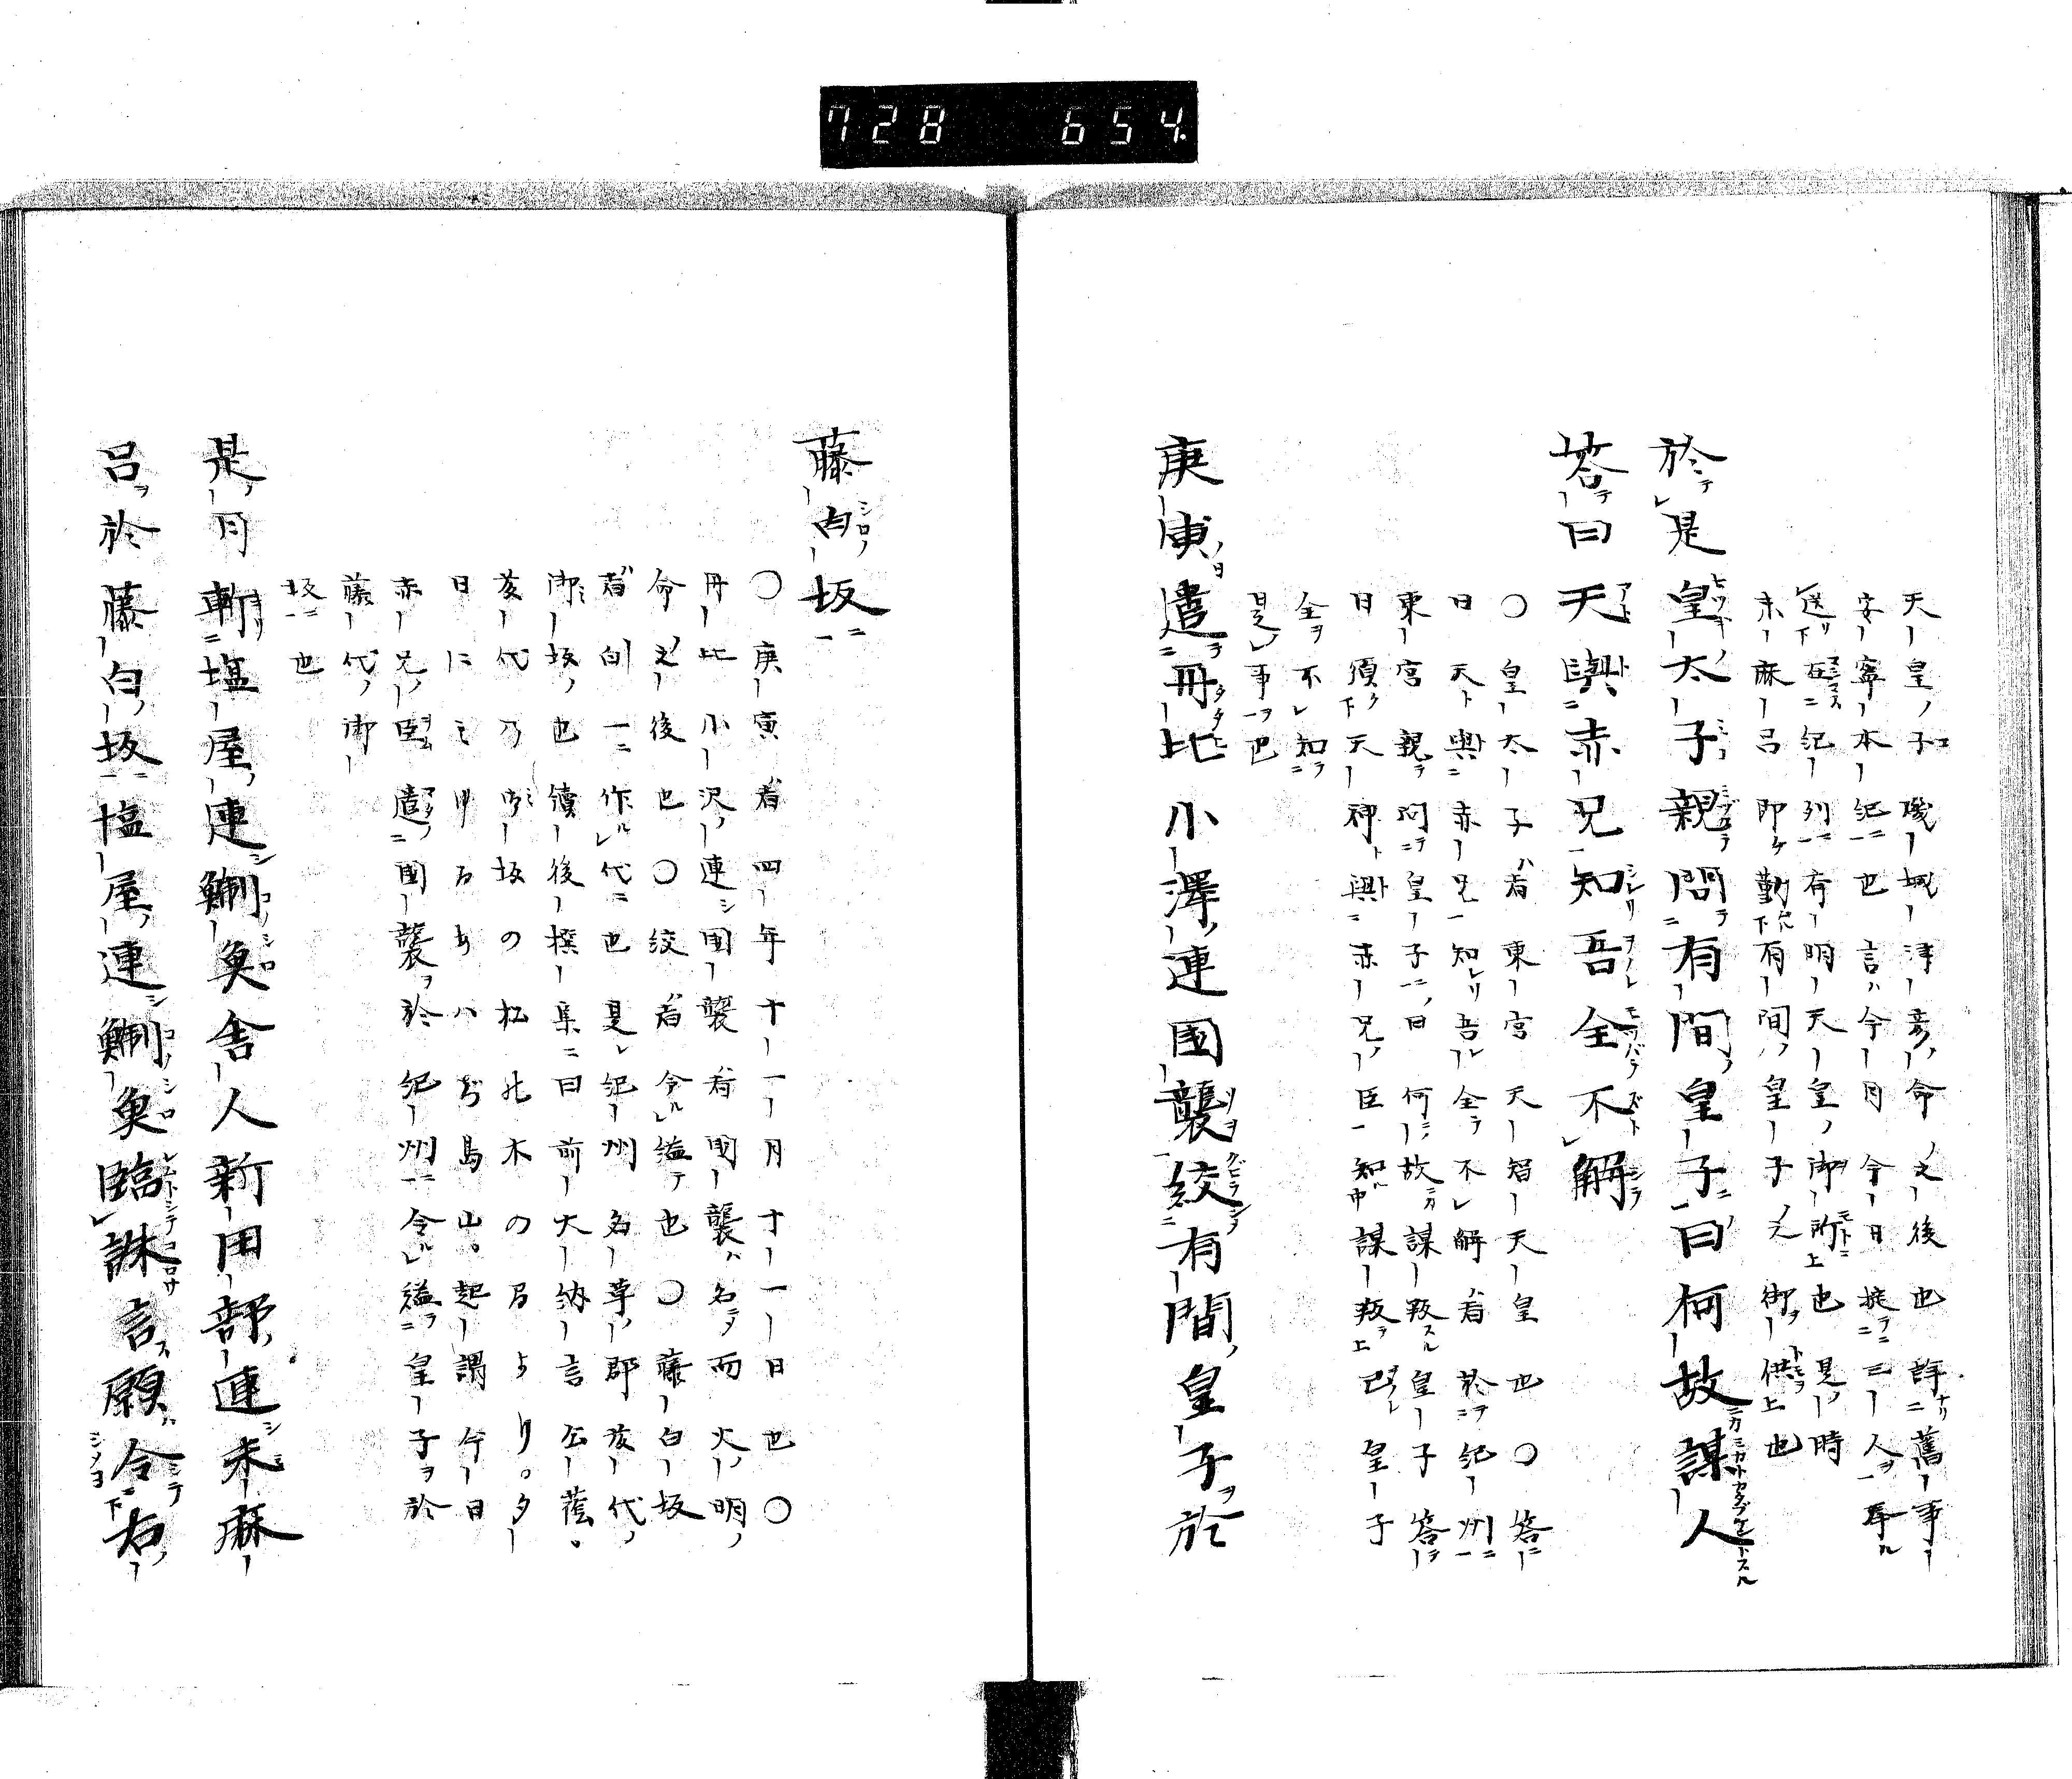 728 654
天皇ノ子磯城津彦ノ命ノ之後也詳ニ舊事
安寧本紀ニ也言ハ今月今日捉ニ三人ヲ奉ル
送リ下在ニ紀列ニ有明天皇ノ御所ニ上也是ノ時
未麻呂即ケ勤下有間ノ皇子ノ之御供ヲ上也
於テ是皇太子親問ニ有間ノ皇子ニ曰何故謀人
答テ曰天與ニ赤兄知吾全不解
〇皇太子ハ者東宮天智天皇也〇答ニ
曰天ト與ニ赤兄知レリ吾レ全ラ不レ解ハ者於ニ紀州ニ
東宮親ラ問ニ皇子ニ曰何故謀叛スル皇子答ヲ
曰須ク下天神ト與ニ赤兄ノ臣知中謀叛ヲ上已レ皇子
全ヲ不レ知ニ
是ノ事ヲ也
庚寅ノ日遣ニ丹比小澤ノ連国襲ヲ絞ニ有間ノ皇子ヲ於
藤白ノ坂ニ
〇庚寅ハ者四年十一月十一日也〇
丹比小沢ノ連国襲ハ者国襲ハ名ラ而火ノ明ノ
命之後也〇絞ハ者令ル縊テ也〇藤白坂
ハ者白一ニ作ル代ニ也是レ紀州名草ノ郡藤代ノ
御坂ノ也續後撰集ニ曰前大納言公蔭。
藤代乃御坂の松の木の間より。夕
日にみゆるあハぢ島山。起謂今日
赤兄ノ臣遣ニ国襲ヲ於紀州ニ令ル縊ラ皇子ヲ於
藤代ノ御
坂ニ也
是ノ月斬ニ塩屋ノ連鯯魚舎人新田部ノ連未麻
呂ヲ於藤白ノ坂ニ塩屋ノ連鯯魚臨誅言ス願ハ令下右ノ